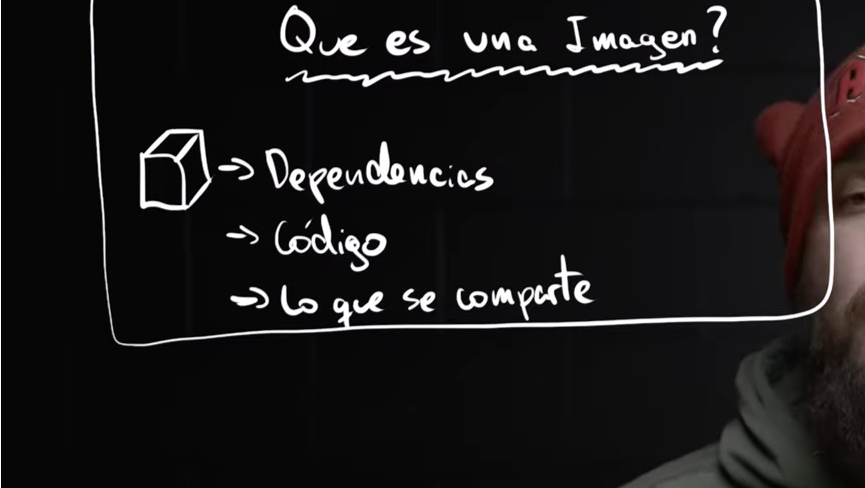 Que es una Imagen?
→ Dependencias
→ Código
→ Lo que se comparte